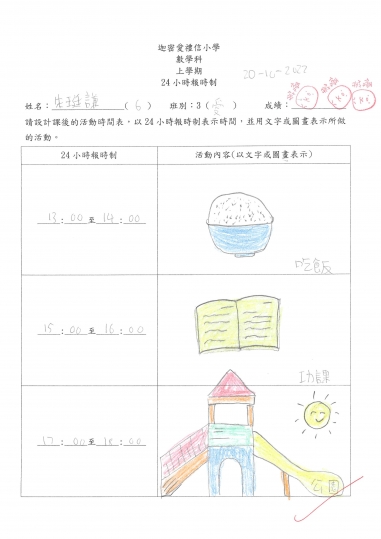 迦密愛禮信小學
數學科
上學期
20-10-2022
24 小時報時制
姓名: (6) 班別:3(愛) 成績:
請設計課後的活動時間表,以 24 小時報時制表示時間,並用文字或圖畫表示所做
的活動。
24 小時報時制 活動內容(以文字或圖畫表示)
13:00 至 14:00
吃飯
15:00 至 16:00
功課
17:00 至 18:00
公園